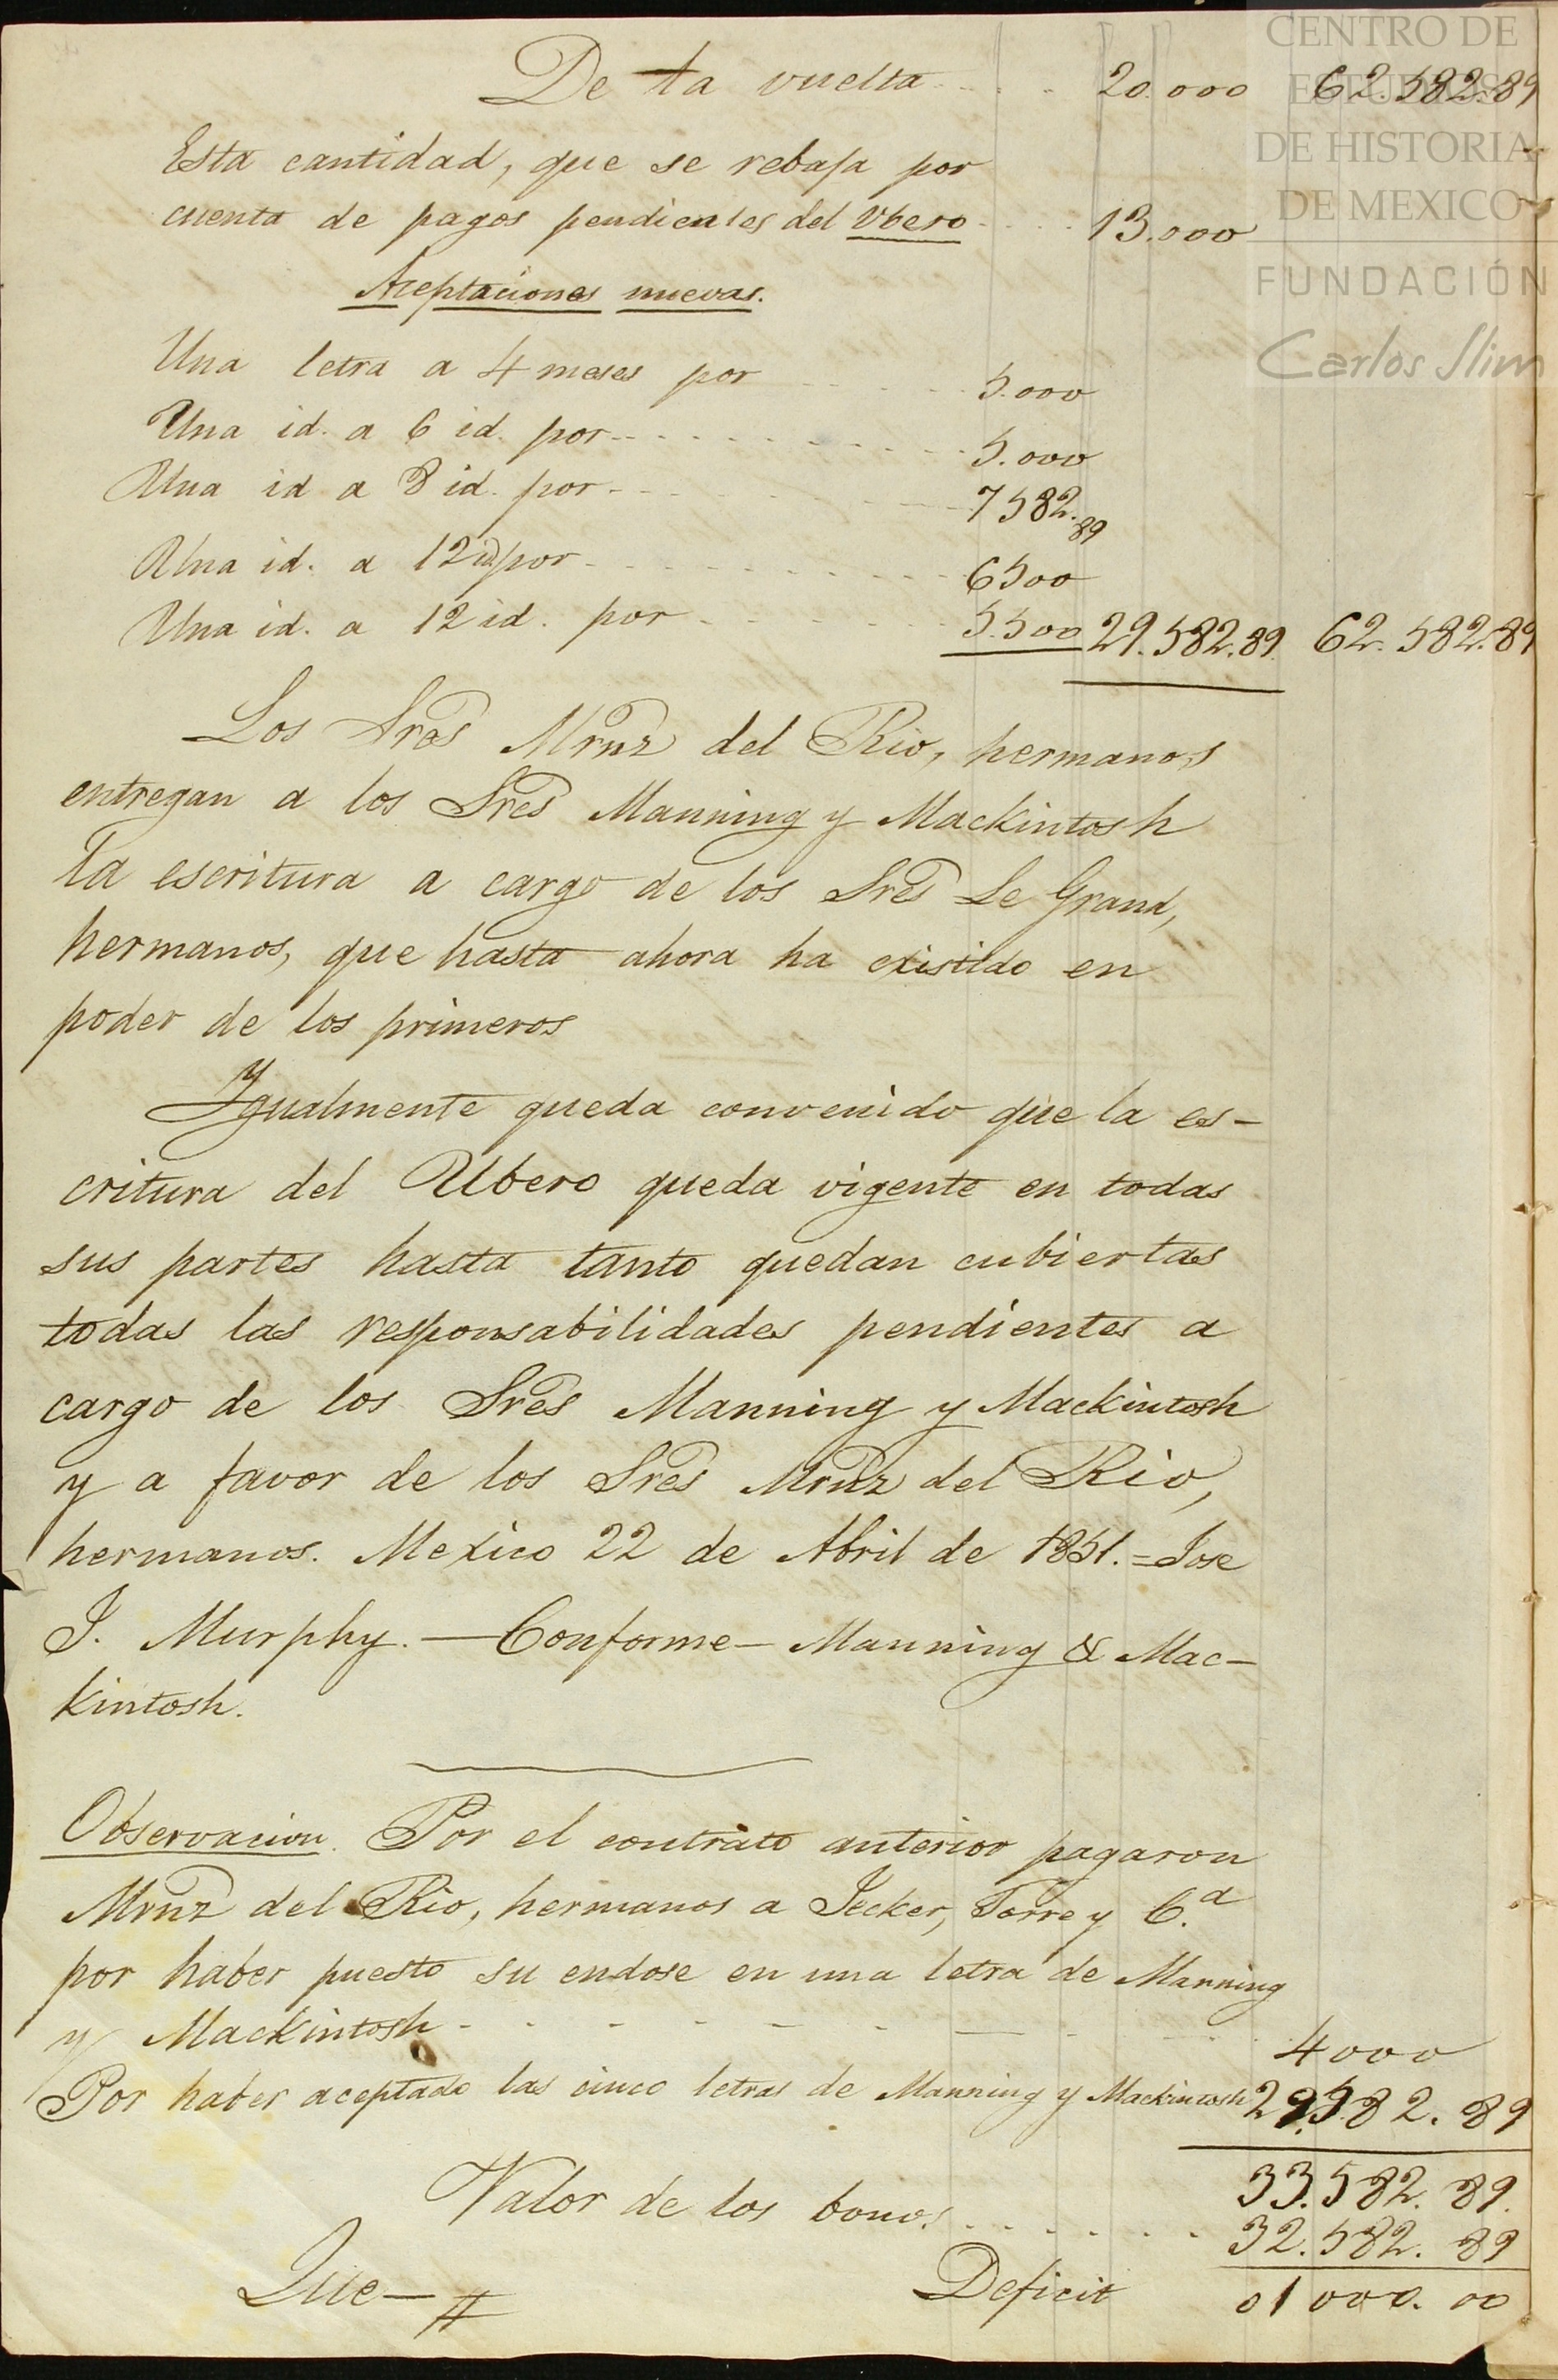 De la vuelta . . . . 20.000 62.582.89
Esta cantidad, que se rebaja por
cuenta de pagos pendientes del Ubero . . . . 13.000
Aceptaciones nuevas.
Una letra a 4 meses por . . . . 5.000
Una id. a 6 id. por . . . . 5.000
Una id a 8 id. por . . . . 7582.89
Una id. a 12 id por . . . . 6500
Una id. a 12 id. por . . . . 5.500 29.582.89 62.582.89
Los Sres Mrnz del Rio, hermanos
entregan a los Sres Manning y Mackintosh
la escritura a cargo de los Sres Le Grand,
hermanos, que hasta ahora ha existido en
poder de los primeros
Ygualmente queda convenido que la es-
critura del Ubero queda vigente en todas
sus partes hasta tanto quedan cubiertas
todas las responsabilidades pendientes a
cargo de los Sres Manning y Mackintosh
y a favor de los Sres Mrnz del Rio,
hermanos. Mexico 22 de Abril de 1851. = Jose
J. Murphy. — Conforme — Manning & Mac-
kintosh.
Observacion. Por el contrato anterior pagaron
Mrnz del Rio, hermanos a Jecker, Torre y C.a
por haber puesto su endose en una letra de Manning
y Mackintosh - - - - - 4000
Por haber aceptado las cinco letras de Manning y Mackintosh 29.582.89
33.582.89.
Valor de los bonos . . . . . . 32.582.89
Deficit 01000.00
Que —
CENTRO DE
ESTUDIOS
DE HISTORIA
DE MEXICO
FUNDACIÓN
Carlos Slim